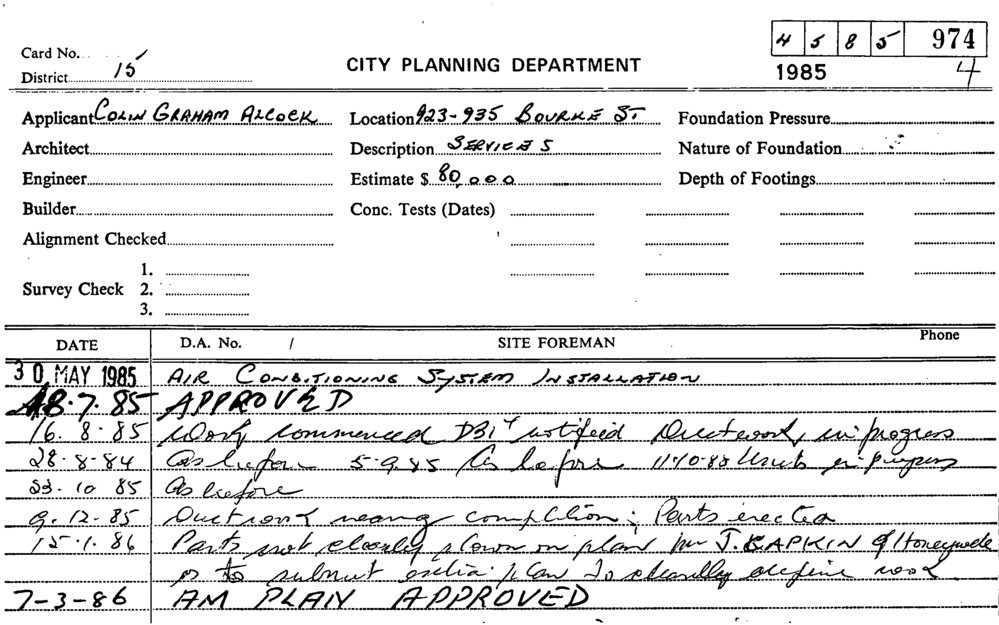 4 5 8 5 974
Card No.
District 15
CITY PLANNING DEPARTMENT
1985 4
Applicant COLIN GRAHAM ALCOCK
Location 923-935 BOURKE ST.
Foundation Pressure
Architect
Description SERVICES
Nature of Foundation
Engineer
Estimate $ 80,000
Depth of Footings
Builder
Conc. Tests (Dates)
Alignment Checked
1.
Survey Check 2.
3.
DATE D.A. No. / SITE FOREMAN Phone
30 MAY 1985 AIR CONDITIONING SYSTEM INSTALLATION
18.7.85 APPROVED
16.8.85 Work commenced notified Ductwork in progress
28.8.84 As before 5.9.85 As before 11.10.85 Units in progress
23.10.85 As before
9.12.85 Ductwork nearing completion; Parts erected
15.1.86 Parts not clearly shown on plan Mr J. of Honeywell
is to submit extra plan to clearly define work
7-3-86 AM PLAN APPROVED